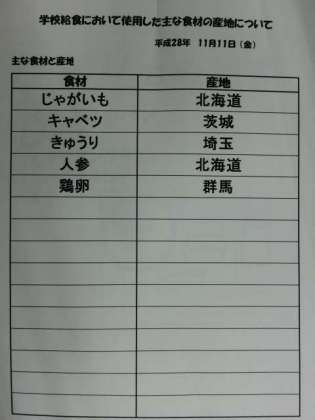 学校給食において使用した主な食材の産地について
平成28年 11月11日（金）
主な食材と産地
食材 産地
じゃがいも 北海道
キャベツ 茨城
きゅうり 埼玉
人参 北海道
鶏卵 群馬